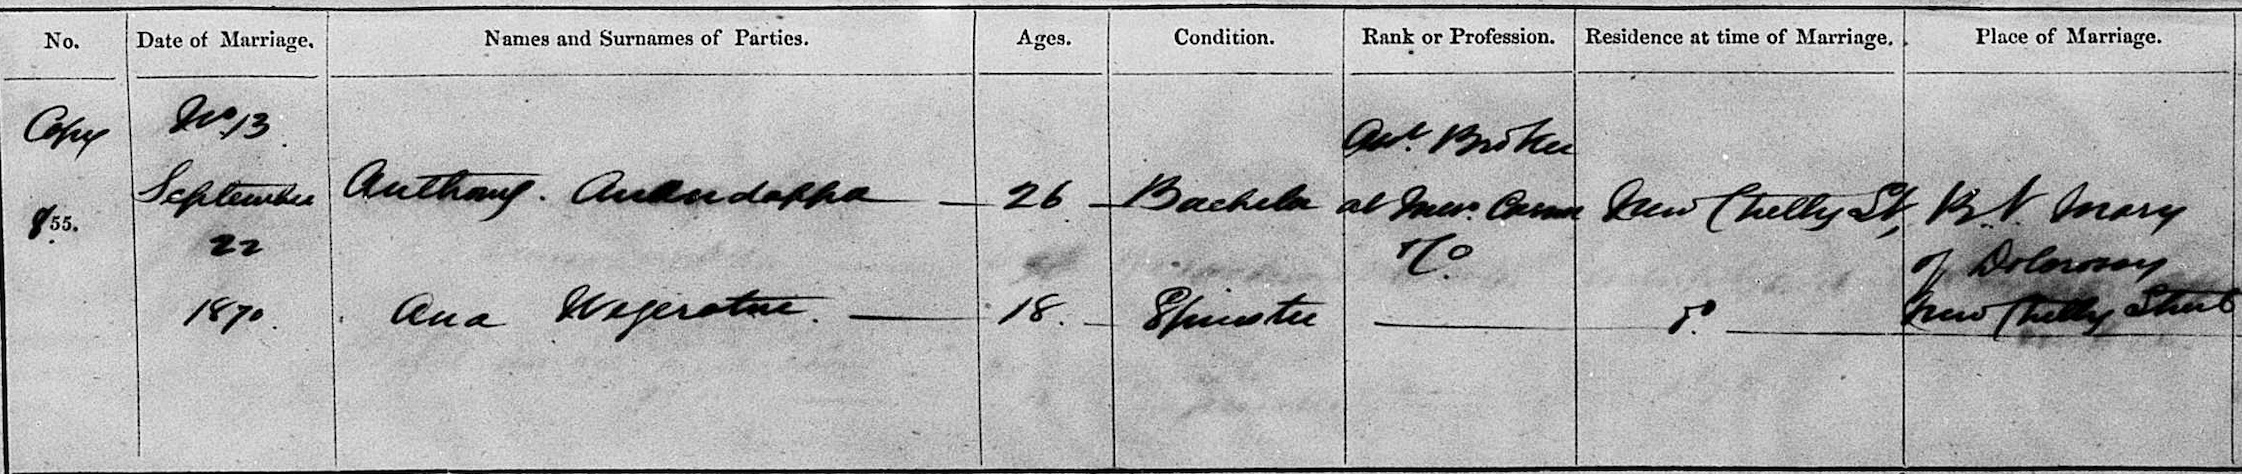 No. Date of Marriage. Names and Surnames of Parties. Ages. Condition. Rank or Profession. Residence at time of Marriage. Place of Marriage.
Copy No 13
Broker
September Anthony. Anandappa 26 Bachelor at New Chetty St, B. V. Mary
855.
22 & Co. of Dolorosy
1870. Ana Wejeratne. 18. Spinster Do New Chetty Street